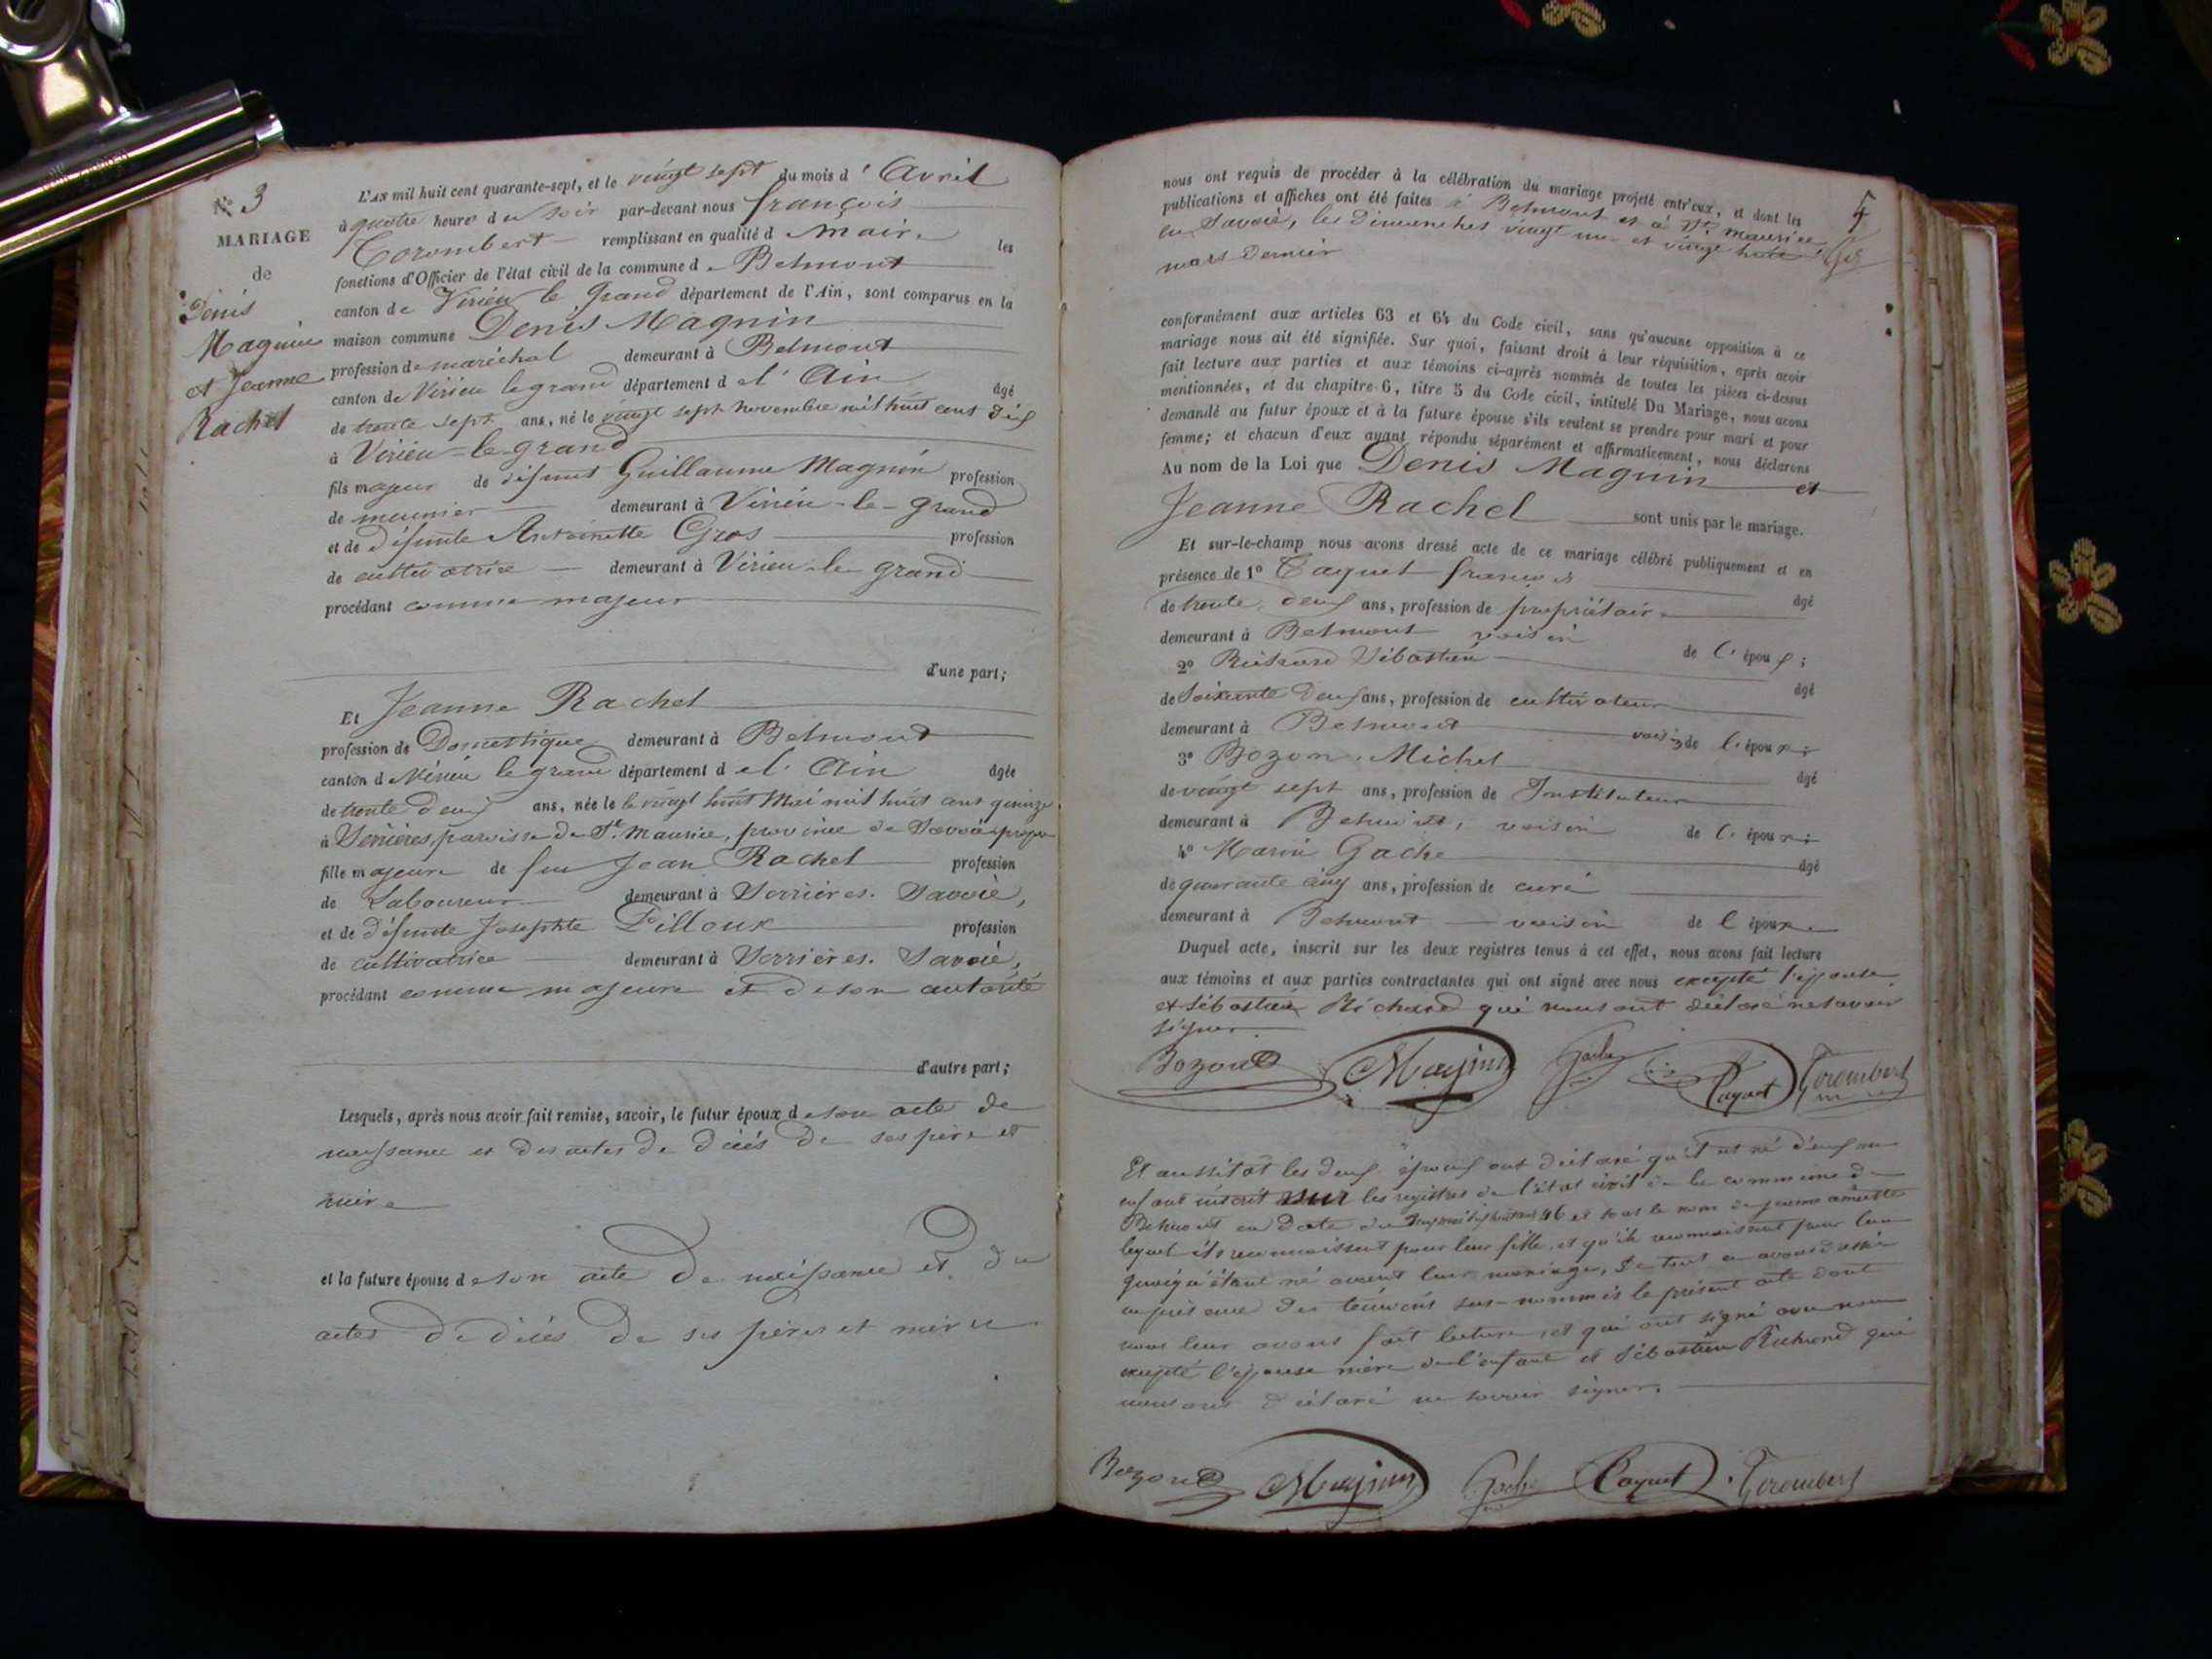 N° 3
MARIAGE
de
Denis
Magnin
et Jeanne
Rachel
L'AN mil huit cent quarante-sept, et le vingt sept du mois d'Avril
à quatre heures du soir par-devant nous françois
Corombert remplissant en qualité de Maire les
fonctions d'Officier de l'état civil de la commune de Belmont
canton de Virieu le Grand département de l'Ain, sont comparus en la
maison commune Denis Magnin
profession de maréchal demeurant à Belmont
canton de Virieu le grand département de l'Ain âgé
de trente sept ans, né le vingt sept novembre mil huit cent dix
à Virieu-le-grand
fils majeur de défunt Guillaume Magnin profession
de meunier demeurant à Virieu-le-grand
et de défunte Antoinette Gros profession
de cultivatrice demeurant à Virieu-le-grand
procédant comme majeur
d'une part;
Et Jeanne Rachel
profession de Domestique demeurant à Belmont
canton de Virieu le grand département de l'Ain âgée
de trente deux ans, née le le vingt huit Mai mil huit cent quinze
à Serrières, paroisse de St. Maurice, province de Savoie propre
fille majeure de feu Jean Rachel profession
de Laboureur demeurant à Serrières. Savoie,
et de défunte Josephte Pilloux profession
de cultivatrice demeurant à Serrières. Savoie,
procédant comme majeure et de son autorité
d'autre part;
Lesquels, après nous avoir fait remise, savoir, le futur époux de son acte de
naissance et des actes de décés de ses père et
mère
et la future épouse de son acte de naissance et du
actes de décés de ses pères et mère
4
nous ont requis de procéder à la célébration du mariage projeté entr'eux, et dont les
publications et affiches ont été faites à Belmont et à St. Maurice
en Savoie, les dimanches vingt un et vingt huit
mars dernier
conformément aux articles 63 et 64 du Code civil, sans qu'aucune opposition à ce
mariage nous ait été signifiée. Sur quoi, faisant droit à leur réquisition, après avoir
fait lecture aux parties et aux témoins ci-après nommés de toutes les pièces ci-dessus
mentionnées, et du chapitre 6, titre 5 du Code civil, intitulé Du Mariage, nous avons
demandé au futur époux et à la future épouse s'ils veulent se prendre pour mari et pour
femme; et chacun d'eux ayant répondu séparément et affirmativement, nous déclarons
Au nom de la Loi que Denis Magnin et
Jeanne Rachel sont unis par le mariage.
Et sur-le-champ nous avons dressé acte de ce mariage célébré publiquement et en
présence de 1° Caquet françois
âgé
de trente deux ans, profession de propriétaire
demeurant à Belmont voisin de l'époux;
2° Richard Sébastien
âgé
de Soixante deux ans, profession de cultivateur
demeurant à Belmont voisin de l'époux;
3° Bozon Michel
âgé
de vingt sept ans, profession de Instituteur
demeurant à Belmont, voisin de l'époux;
4° Marin Gache
âgé
de quarante cinq ans, profession de curé
demeurant à Belmont voisin de l'époux
Duquel acte, inscrit sur les deux registres tenus à cet effet, nous avons fait lecture
aux témoins et aux parties contractantes qui ont signé avec nous excepté l'épouse
et Sébastien Richard qui nous ont déclaré ne savoir
signer
Bozon Magnin Gache Caquet Corombert
Et aussitôt les deux époux ont déclaré qu'il est né d'eux un
enfant inscrit sur les registres de l'état civil de la commune de
Belmont en date du 46 et sous le nom de
lequel ils reconnaissent pour leur fille, et qu'ils reconnaissent pour leur
quoiqu'étant né avant leur mariage, De tout ce avons dressé
en présence des témoins sus-nommés le présent acte dont
nous leur avons fait lecture et qui ont signé avec nous
excepté l'épouse mère de l'enfant et Sébastien Richard qui
nous ont déclaré ne savoir signer.
Bozon Magnin Gache Caquet Corombert